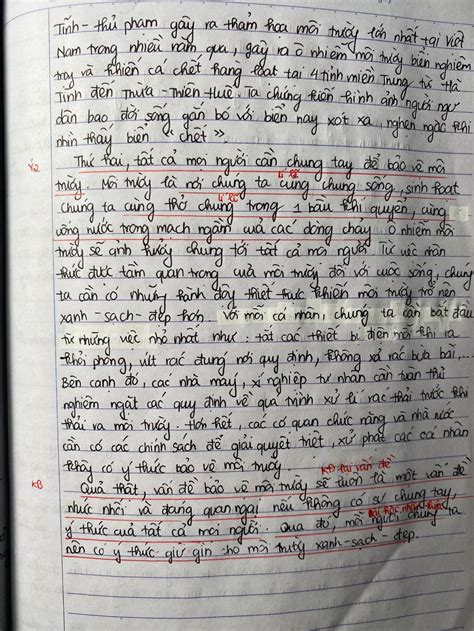 Tĩnh - thủ phạm gây ra thảm họa môi trường lớn nhất tại Việt
Nam trong nhiều năm qua, gây ra ô nhiễm môi trường biển nghiêm
trọng và khiến cá chết hàng loạt tại 4 tỉnh miền Trung từ Hà
Tĩnh đến Thừa - Thiên Huế. Ta chứng kiến hình ảnh người ngư
dân bao đời sống gắn bó với biển nay xót xa, nghẹn ngào khi
nhìn thấy biển "chết".
Thứ hai, tất cả mọi người cần chung tay để bảo vệ môi
trường. Môi trường là nơi chúng ta cùng chung sống, sinh hoạt.
Chúng ta cùng thở chung trong 1 bầu khí quyển, cùng
uống nước trong mạch ngầm của các dòng chảy. Ô nhiễm môi
trường sẽ ảnh hưởng chung tới tất cả mọi người. Từ việc nhận
thức được tầm quan trọng của môi trường đối với cuộc sống, chúng
ta cần có những hành động thiết thực khiến môi trường trở nên
xanh - sạch - đẹp hơn. Với mỗi cá nhân, chúng ta cần bắt đầu
từ những việc nhỏ nhất như: tắt các thiết bị điện mỗi khi ra
khỏi phòng, vứt rác đúng nơi quy định, không xả rác bừa bãi,...
Bên cạnh đó, các nhà máy, xí nghiệp tư nhân cần tuân thủ
nghiêm ngặt các quy định về quá trình xử lí rác thải trước khi
thải ra môi trường. Hơn hết, các cơ quan chức năng và nhà nước
cần có các chính sách để giải quyết triệt, xử phạt các cá nhân
không có ý thức bảo vệ môi trường.
KB KĐ lại vấn đề
Quả thật, vấn đề bảo vệ môi trường sẽ luôn là một vấn đề
nhức nhối và đáng quan ngại nếu không có sự chung tay,
ý thức của tất cả mọi người. Qua đó, mỗi người chúng ta
nên có ý thức giữ gìn cho môi trường xanh - sạch - đẹp.